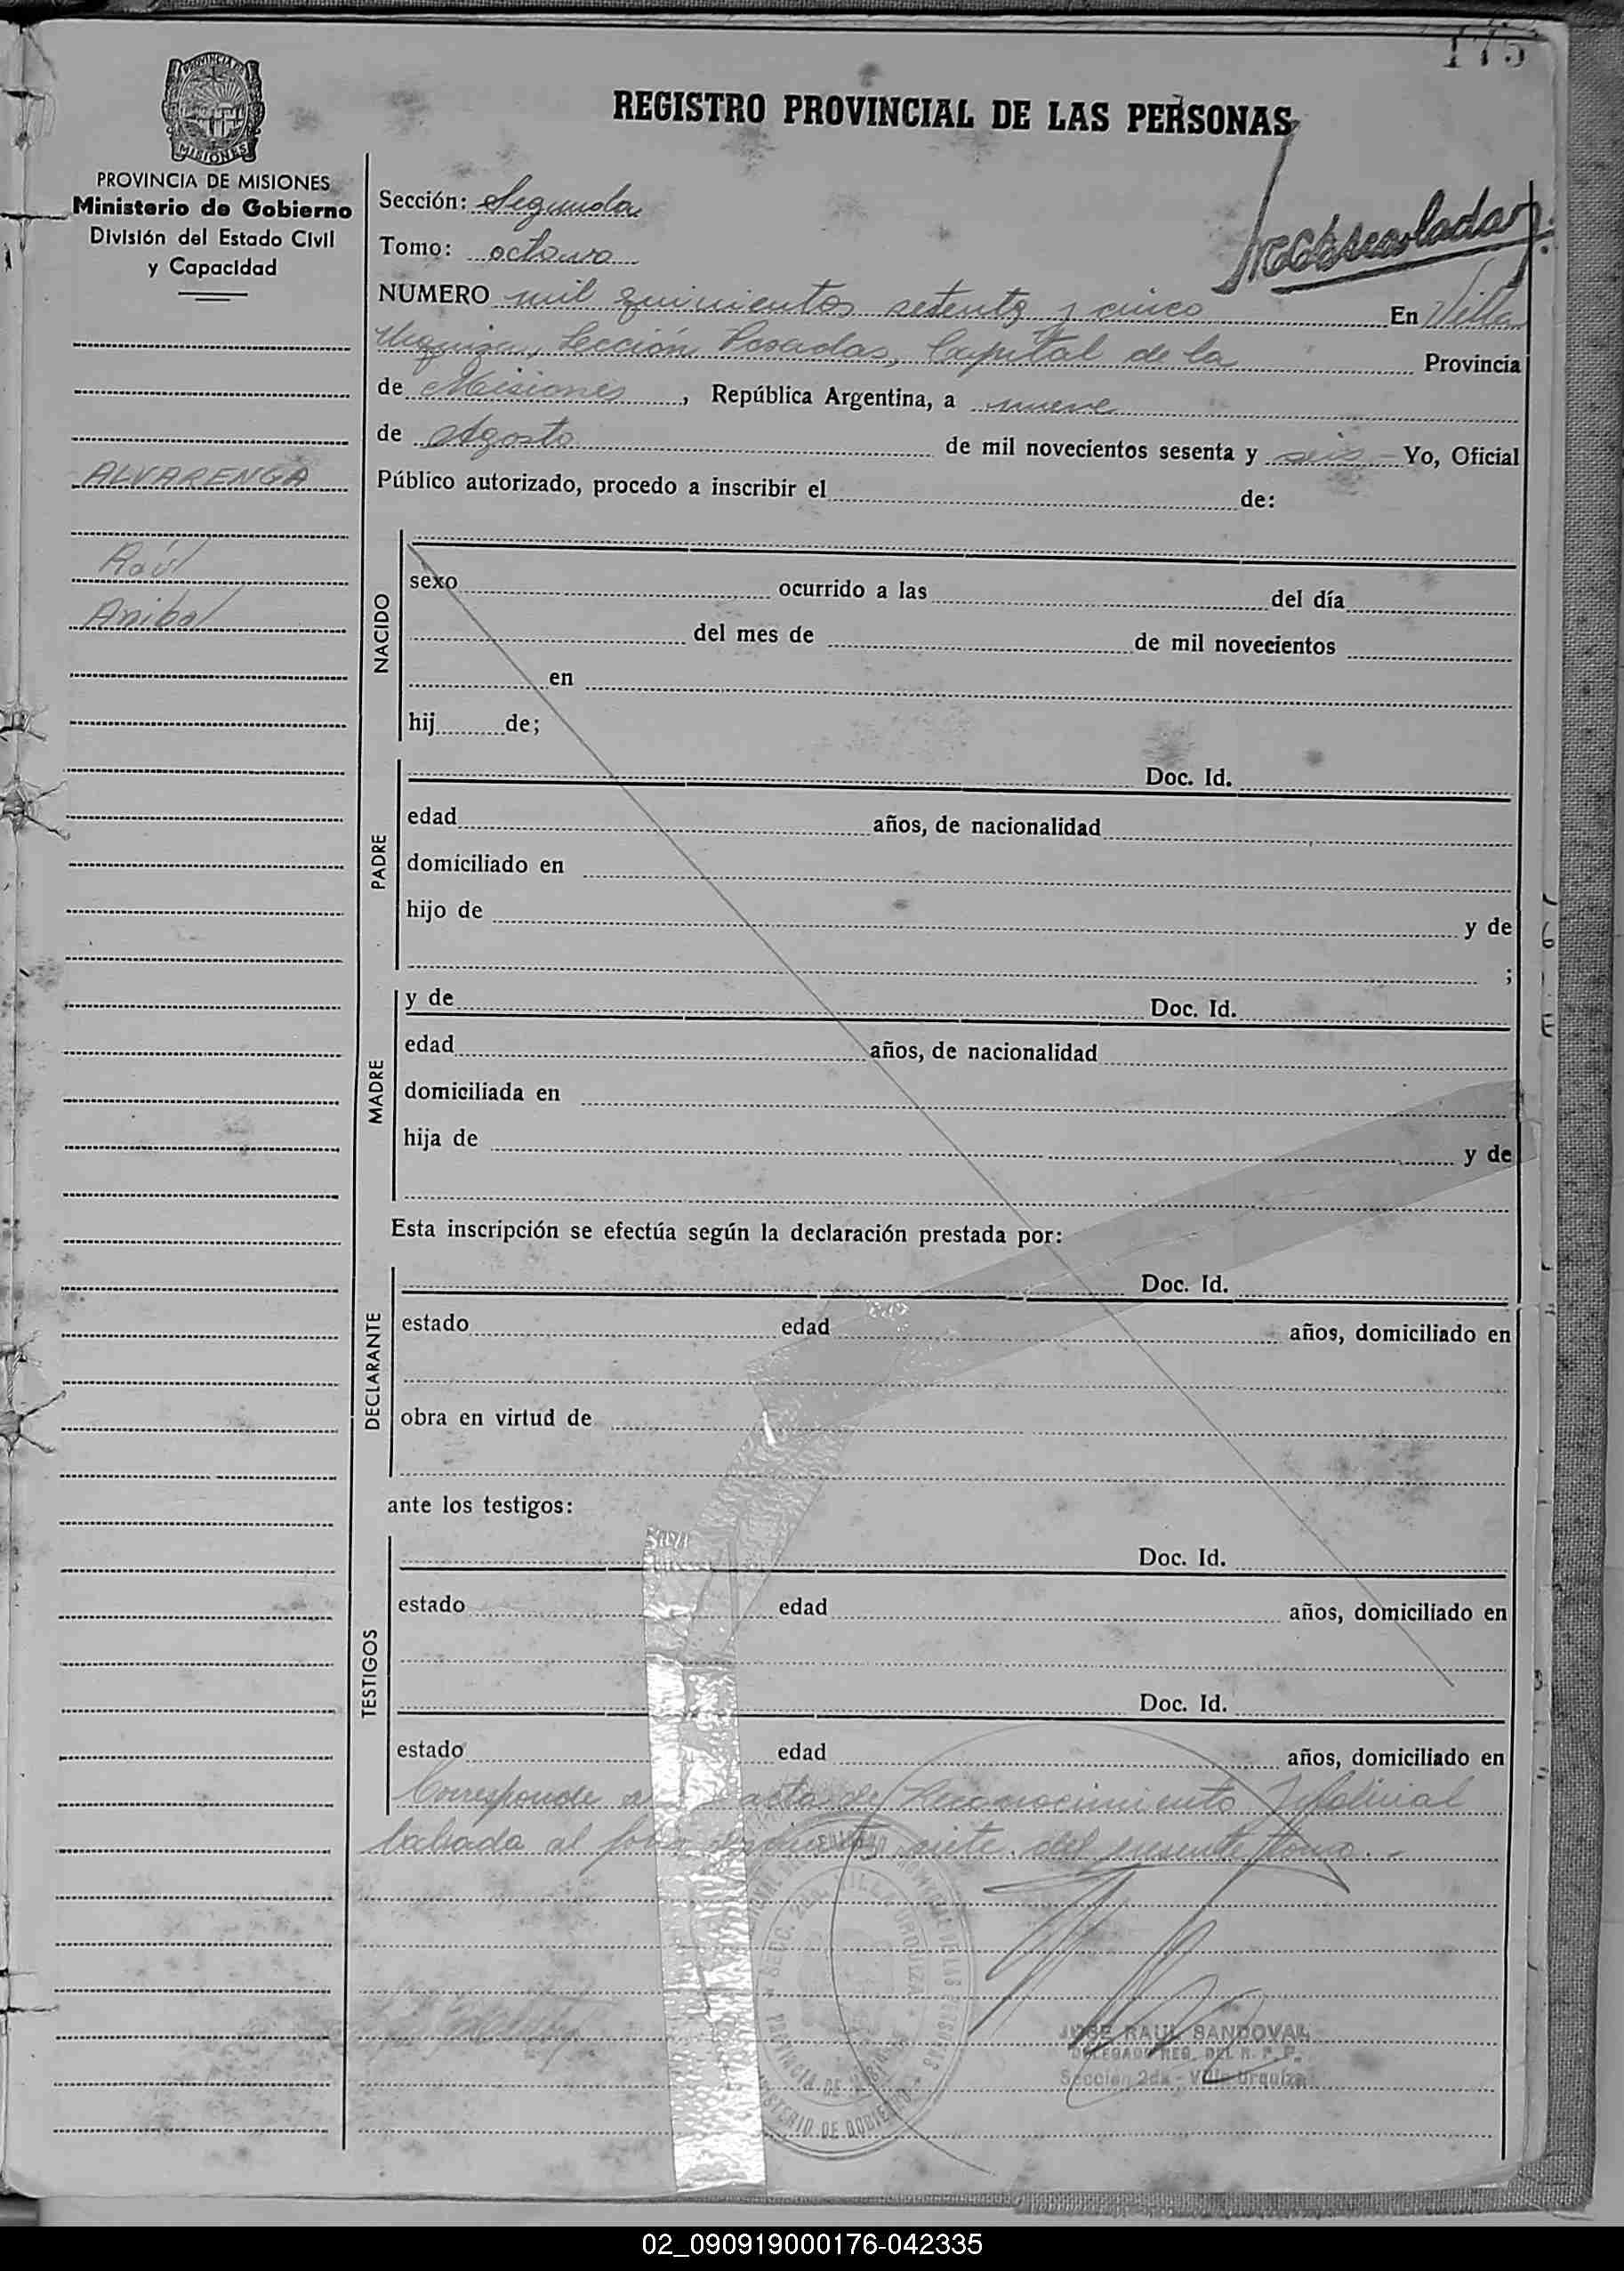 175
PROVINCIA DE MISIONES
REGISTRO PROVINCIAL DE LAS PERSONAS
PROVINCIA DE MISIONES
Ministerio de Gobierno
División del Estado Civil
y Capacidad
Sección: Segunda
Tomo: octavo
NUMERO mil quinientos setenta y cinco En Villa
Urquiza, Sección Posadas, Capital de la Provincia
de Misiones, República Argentina, a nueve
de Agosto de mil novecientos sesenta y seis - Yo, Oficial
ALVARENGA
Público autorizado, procedo a inscribir el de:
Raúl
Anibal
NACIDO
sexo ocurrido a las del día
del mes de de mil novecientos
en
hij de;
PADRE
Doc. Id.
edad años, de nacionalidad
domiciliado en
hijo de y de
;
MADRE
y de Doc. Id.
edad años, de nacionalidad
domiciliada en
hija de y de
Esta inscripción se efectúa según la declaración prestada por:
DECLARANTE
Doc. Id.
estado edad años, domiciliado en
obra en virtud de
ante los testigos:
TESTIGOS
Doc. Id.
estado edad años, domiciliado en
Doc. Id.
estado edad años, domiciliado en
Corresponde acta de Reconocimiento
labrada al siete del presente tomo.-
JOSE RAUL SANDOVAL
DELEGADO REG. DEL R. P. P.
Sección 2da - Villa Urquiza
02_090919000176-042335